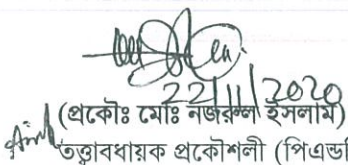 22/11/2020
(প্রকৌঃ মোঃ নজরুল ইসলাম)
তত্ত্বাবধায়ক প্রকৌশলী (পিএন্ডডি